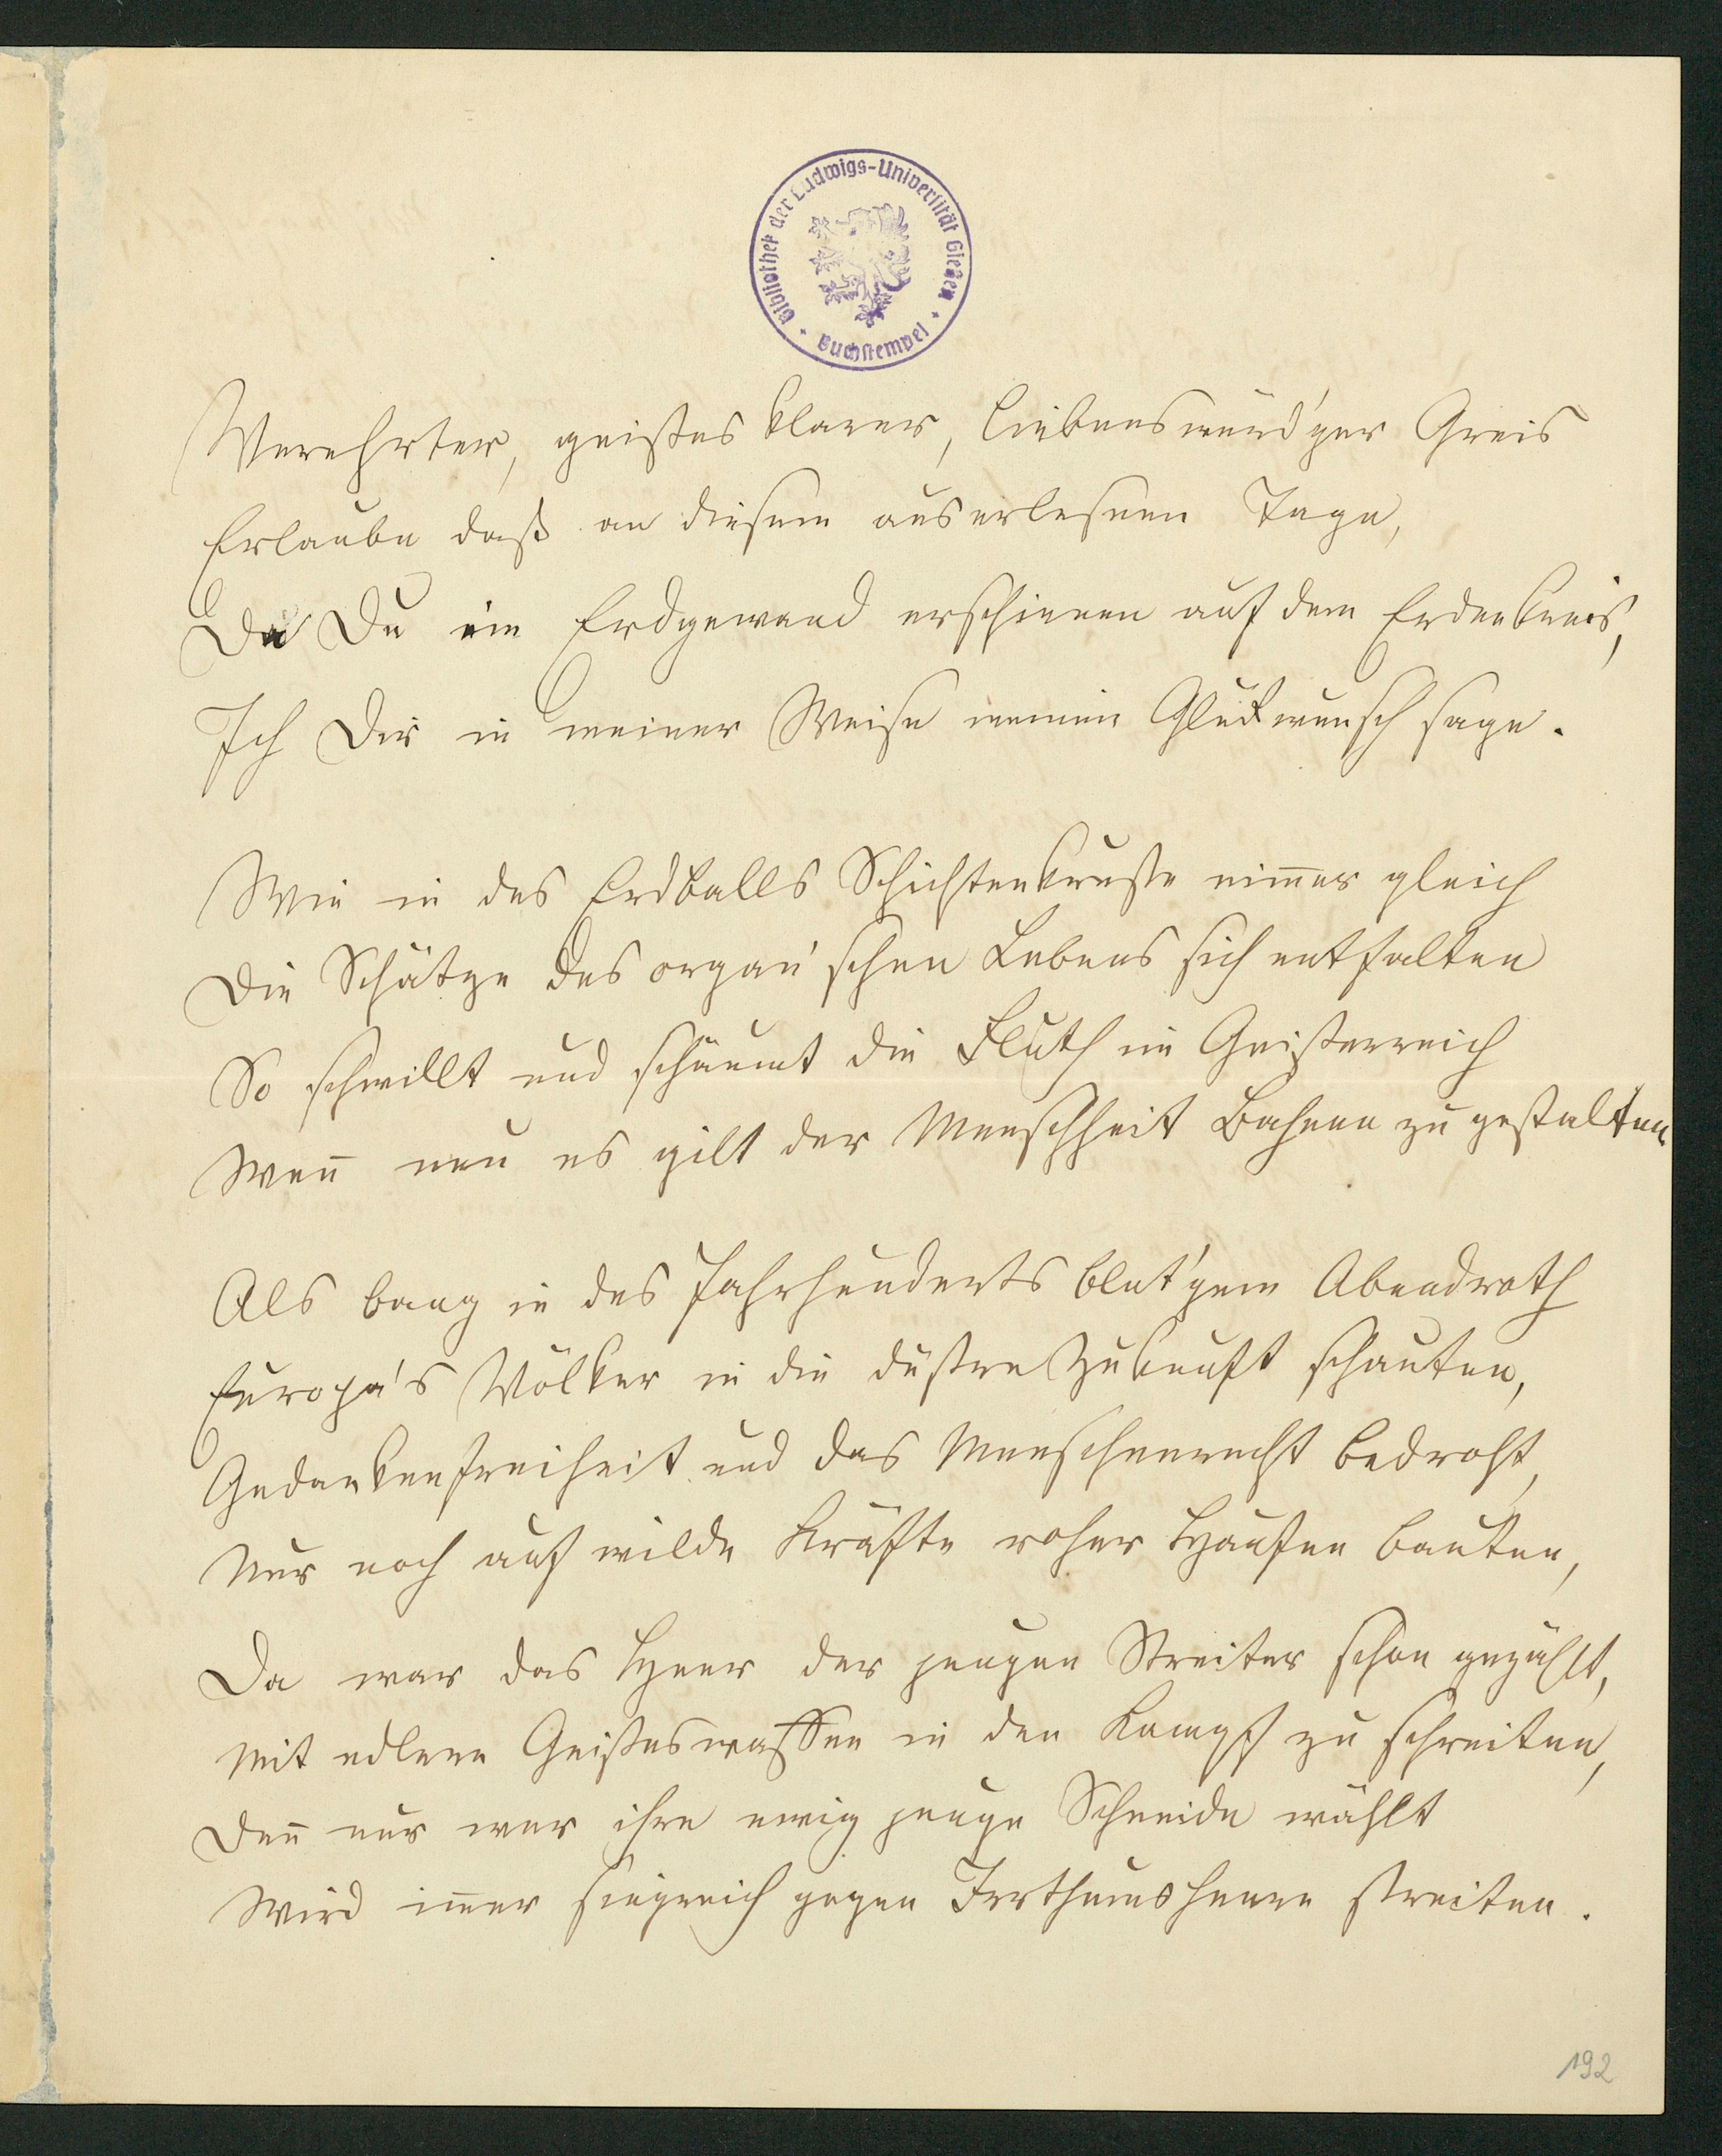 Bibliothek der Ludwigs-Universität Gießen
Buchstempel
Verehrter, geistesklarer, liebenswürd'ger Greis
Erlaube daß an diesem auserlesnen Tage,
Da Du im Erdgewand erschienen auf dem Erdenkreis,
Ich Dir in meiner Weise meinen Glückwunsch sage.
Wie in des Erdballs Schichtenkruste nim̅er gleich
Die Schätze des organ'schen Lebens sich entfalten
So schwillt und schäumt die Fluth im Geisterreich
Wen̅ neu es gilt der Menschheit Bahnen zu gestalten
Als bang in des Jahrhunderts blut'gem Abendroth
Europa's Völker in die düstre Zukunft schauten,
Gedankenfreiheit und das Menschenrecht bedroht,
Nur noch auf wilde Kräfte roher Haufen bauten,
Da war das Heer der jungen Streiter schon gezählt,
Mit edlern Geisteswaffen in den Kampf zu schreiten,
Den̅ nur wer ihre ewig junge Schneide wählt
Wird im̅er siegreich gegen Irrthumsheere streiten.
192